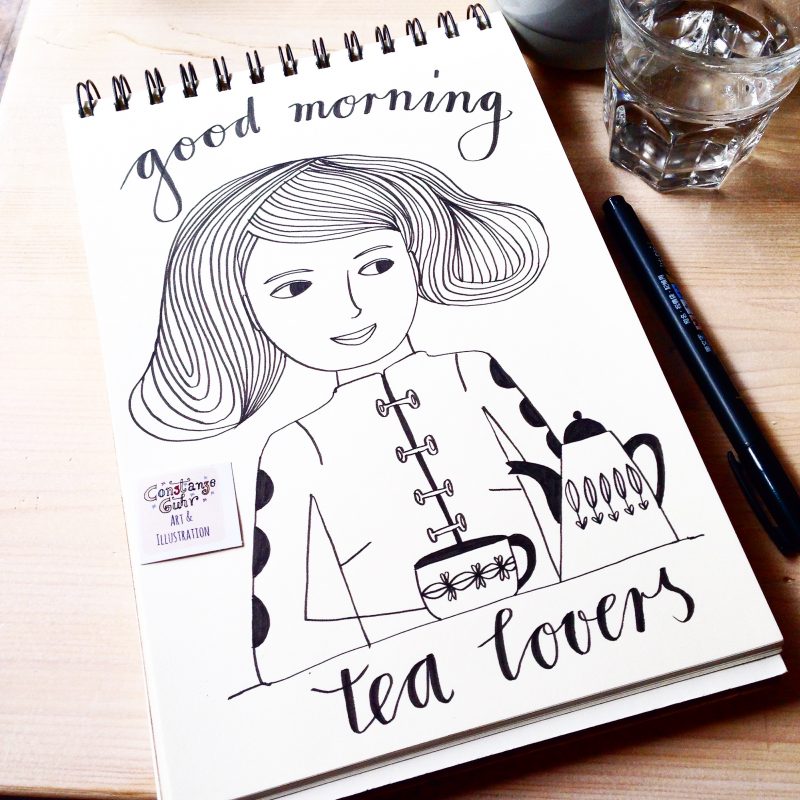 good morning
Constanze
Guhr
ART &
ILLUSTRATION
tea lovers